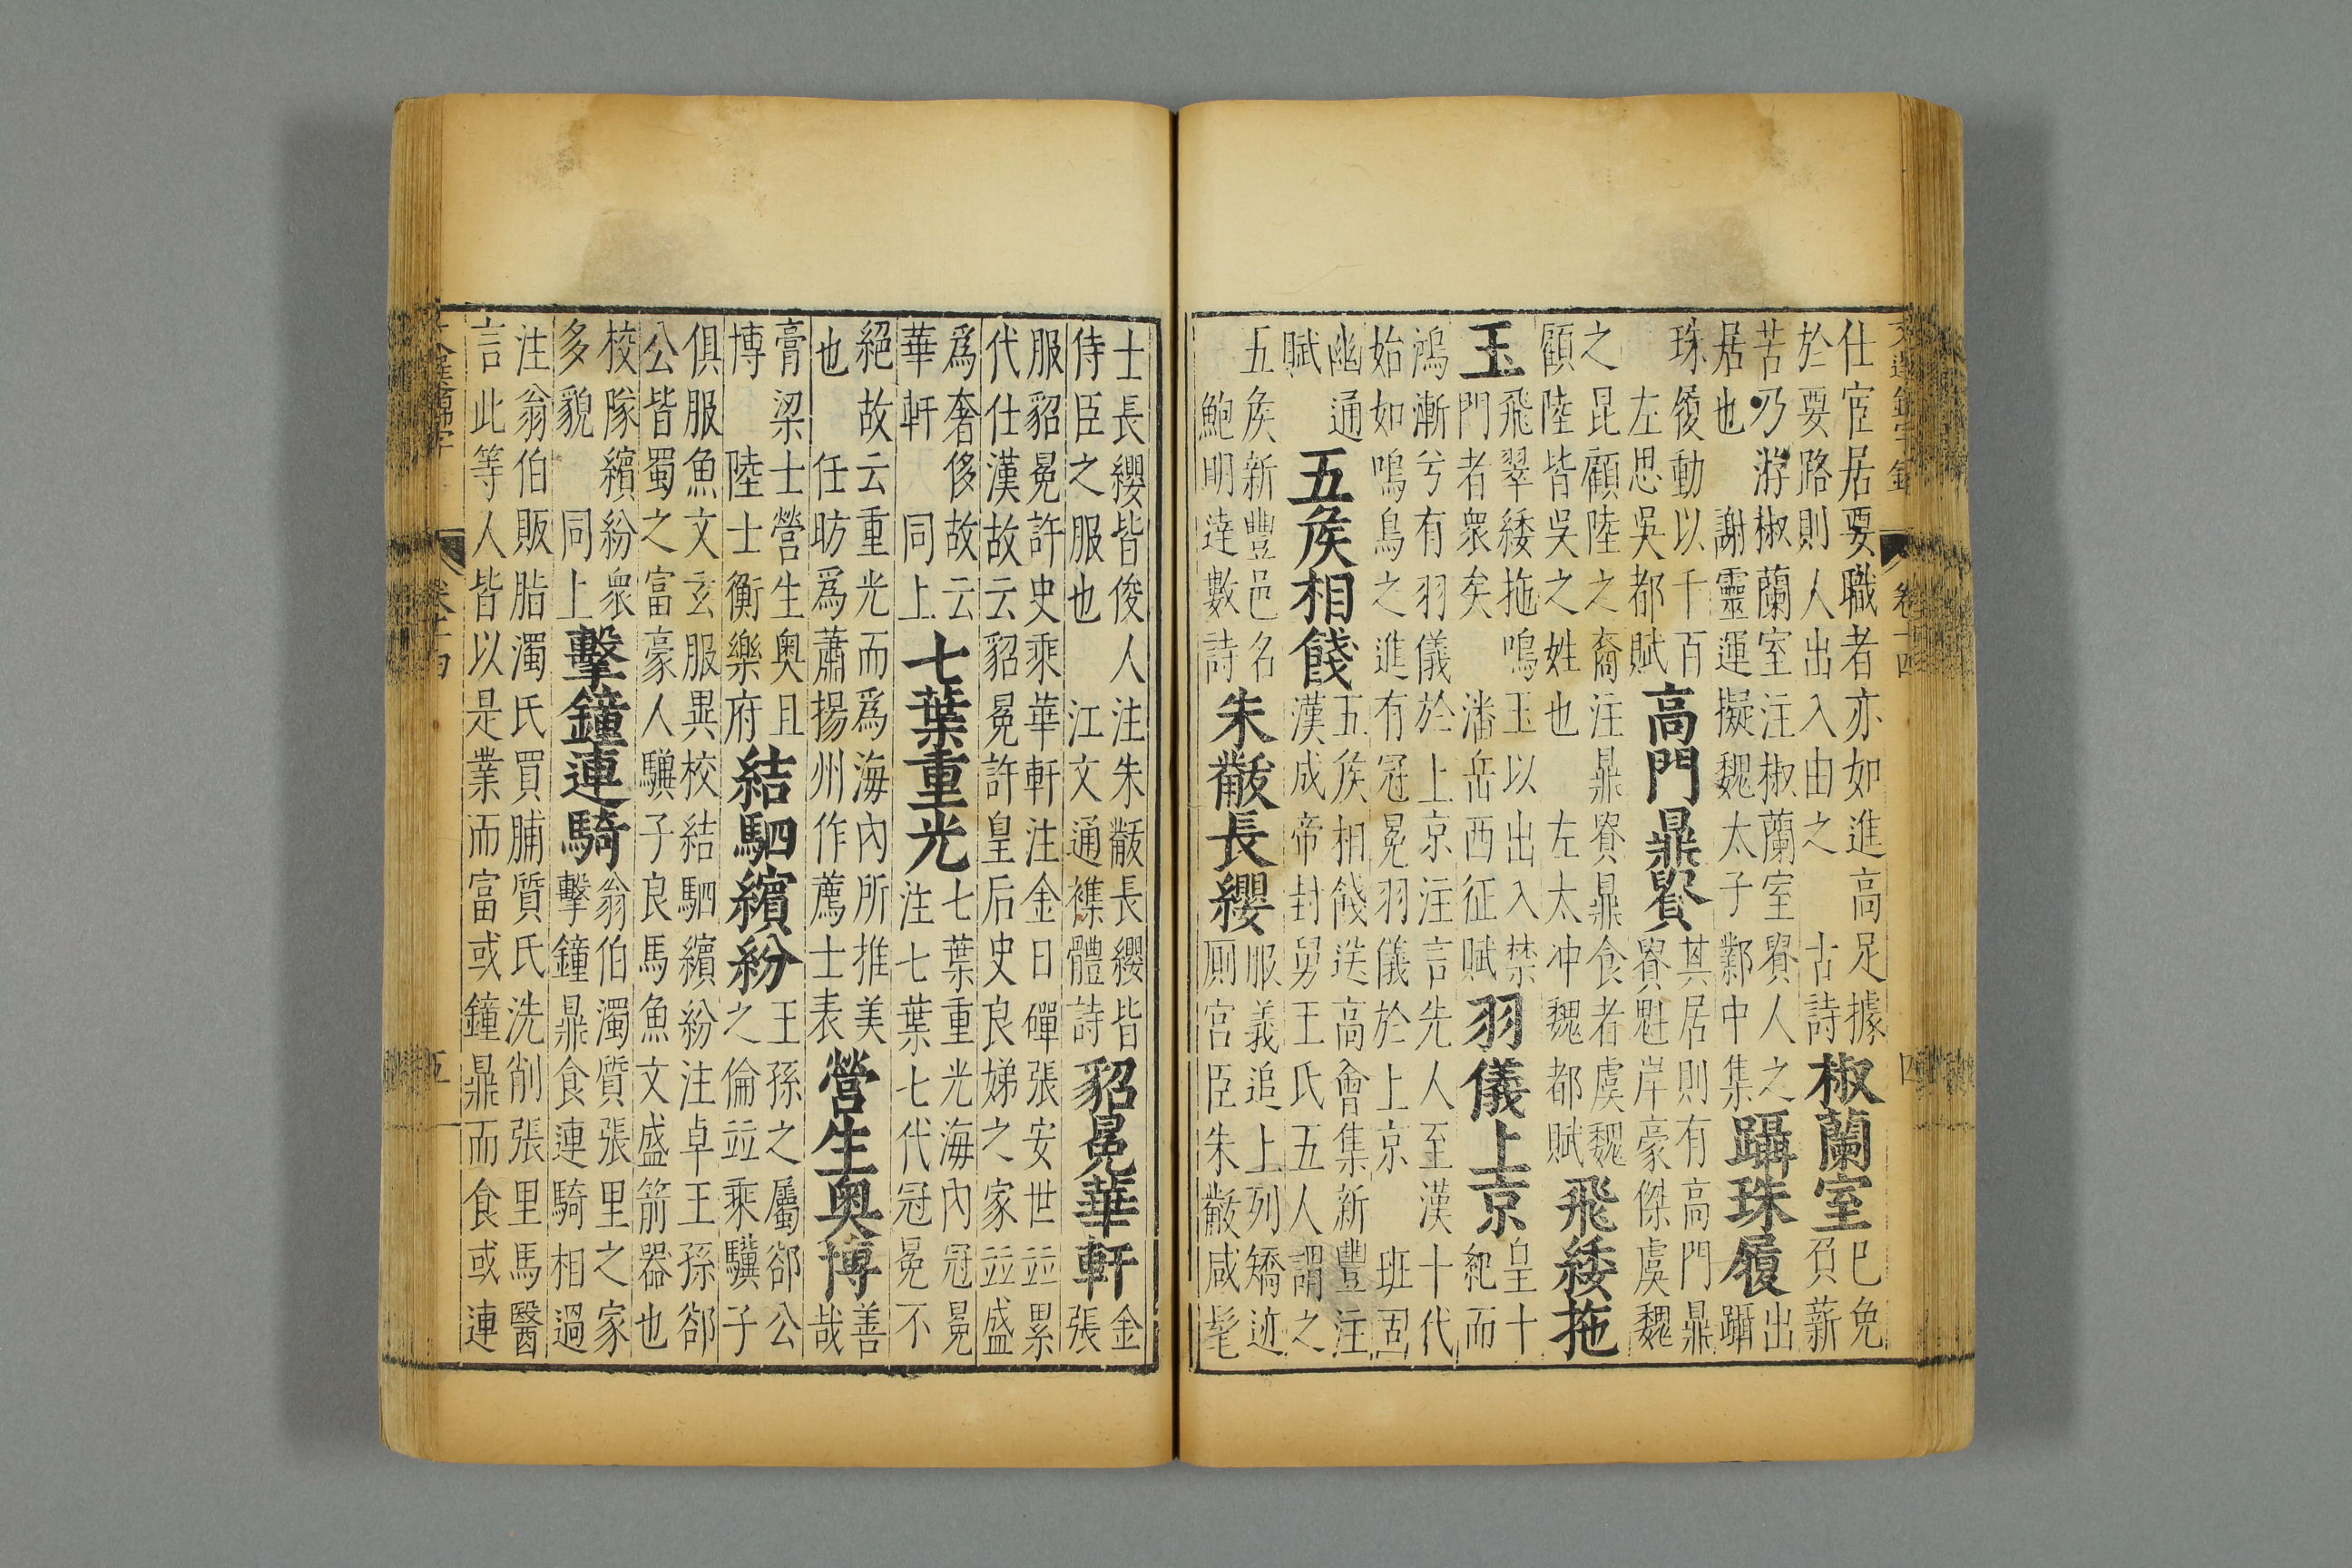 文選錦字錄　卷十四　四
仕宦居要職者亦如進高足據
於要路則人出入由之　古詩
椒蘭室
已免
負薪
苦乃游椒蘭室注椒蘭室賢人之
居也　謝靈運擬魏太子鄴中集
躡珠履
出
躡
珠履動以千百
左思吳都賦
高門鼎貴
其居則有高門鼎
貴魁岸豪傑虞魏
之昆顧陸之裔注鼎貴鼎食者虞魏
顧陸皆吳之姓也　左太冲魏都賦
飛緌拖
玉
飛翠緌拖鳴玉以出入禁
門者衆矣　潘岳西征賦
羽儀上京
皇十
紀而
鴻漸兮有羽儀於上京注言先人至漢十代
始如鳴鳥之進有冠冕羽儀於上京　班固
幽通
賦
五矦相餞
五矦相餞送高會集新豐注
漢成帝封舅王氏五人謂之
五矦新豐邑名
鮑明逹數詩
朱黻長纓
服義追上列矯迹
廁宮臣朱黻咸髦
士長纓皆俊人注朱黻長纓皆
侍臣之服也　江文通襍體詩
貂冕華軒
金
張
服貂冕許史乘華軒注金日磾張安世竝累
代仕漢故云貂冕許皇后史良娣之家竝盛
爲奢侈故云
華軒　同上
七葉重光
七葉重光海內冠冕
注七葉七代冠冕不
絕故云重光而爲海內所推美
也　任昉爲蕭揚州作薦士表
營生奧博
善
哉
膏梁士營生奧且
博　陸士衡樂府
結駟繽紛
王孫之屬郤公
之倫竝乘驥子
俱服魚文玄服異校結駟繽紛注卓王孫郤
公皆蜀之富豪人驥子良馬魚文盛箭器也
校隊繽紛衆
多貌　同上
擊鐘連騎
翁伯濁質張里之家
擊鐘鼎食連騎相過
注翁伯販脂濁氏買脯質氏洗削張里馬醫
言此等人皆以是業而富或鐘鼎而食或連
卷十四　五